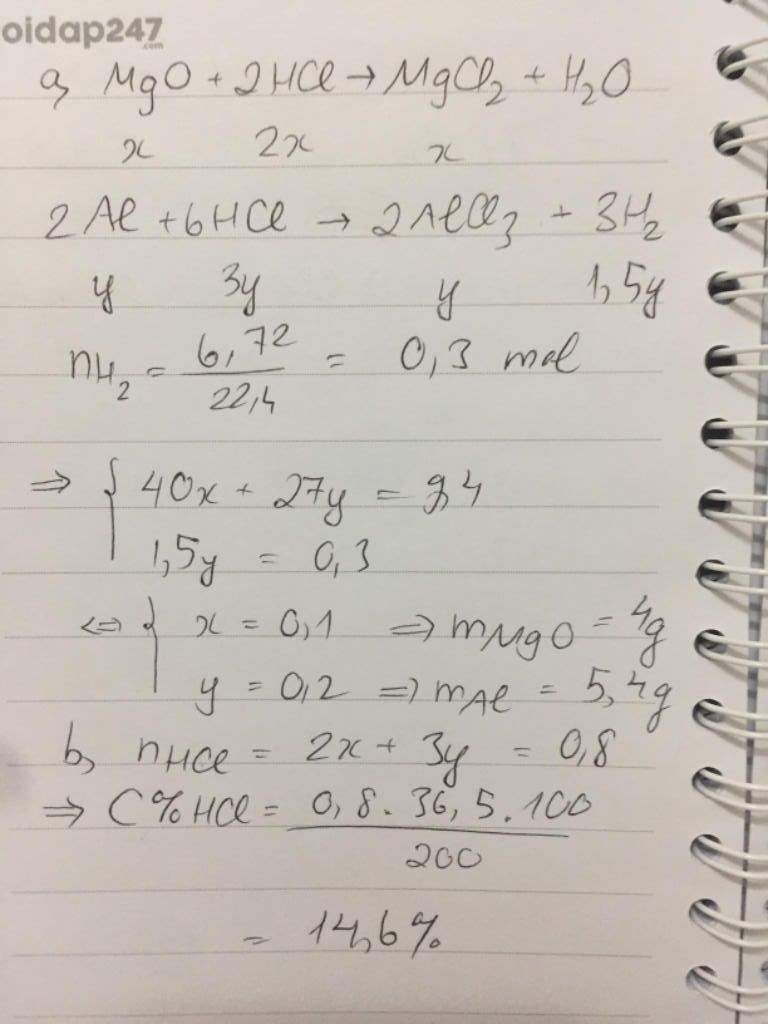 oidap247
.com
a, MgO + 2HCl → MgCl₂ + H₂O
x 2x x
2Al + 6HCl → 2AlCl₃ + 3H₂
y 3y y 1,5y
nH₂ = 6,72 / 22,4 = 0,3 mol
⇒ { 40x + 27y = 9,4
1,5y = 0,3
⇔ { x = 0,1 ⇒ mMgO = 4g
y = 0,2 ⇒ mAl = 5,4g
b, nHCl = 2x + 3y = 0,8
⇒ C%HCl = 0,8 . 36,5 . 100 / 200
= 14,6%